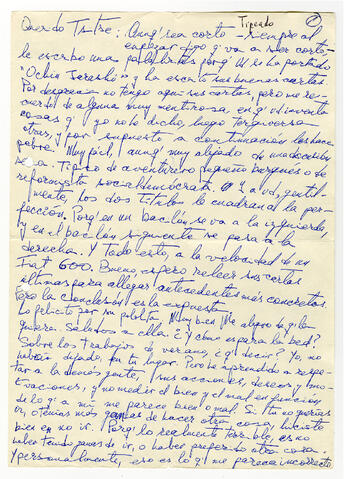 Tipeado
1
Querido Tatre: Aunq' sea corto - siempre al
empezar digo q' va a ser corto -
le escribo unas palabritas porq' Ud es ha portado
"Ocho Serashó" y ha escrito sus buenas cartas.
Por desgracia no tengo aquí sus cartas, pero me re-
cuerdo de alguna muy mentirosa, en q' Ud inventa
cosas q' yo no le dicho, luego tergiversa
otras, y por supuesto a continuación las hace
pobre. Muy fiel, aunq' muy alejado de una discusión
seria. Típico de aventurero pequeño burgués o de
reformista socialdemócrata. A Ud, gentil-
mente, los dos títulos le cuadran a la per-
fección. Porq' en un bailón se va a la izquierda
y en el bailón siguiente se pasa a la
derecha. Y todo esto, a la velocidad de un
Fiat 600. Bueno, espero releer sus cartas
últimas para allegar antecedentes más concretos.
Pero la conclusión es la expuesta
Lo felicito por su polola. Muy bien. Me alegro de q' la
quiera. Saludos a ella. ¿Y cómo es para la bed?
Sobre los trabajos de verano, ¿q' decir? Yo, no
habría dejado, en tu lugar. Pero he aprendido a respe-
tar a la demás gente, sus acciones, deseos y mo-
tivaciones, y no medir el bien y el mal en función
de lo q' a mí me parece bien o mal. Si tú no querías
ir, o tenías más ganas de hacer otra cosa, hiciste
bien en no ir. Porq' lo realmente terrible, es no
haber tenido ganas de ir, o haber preferido otra cosa.
Y personalmente, eso es lo q' me parece incorrecto